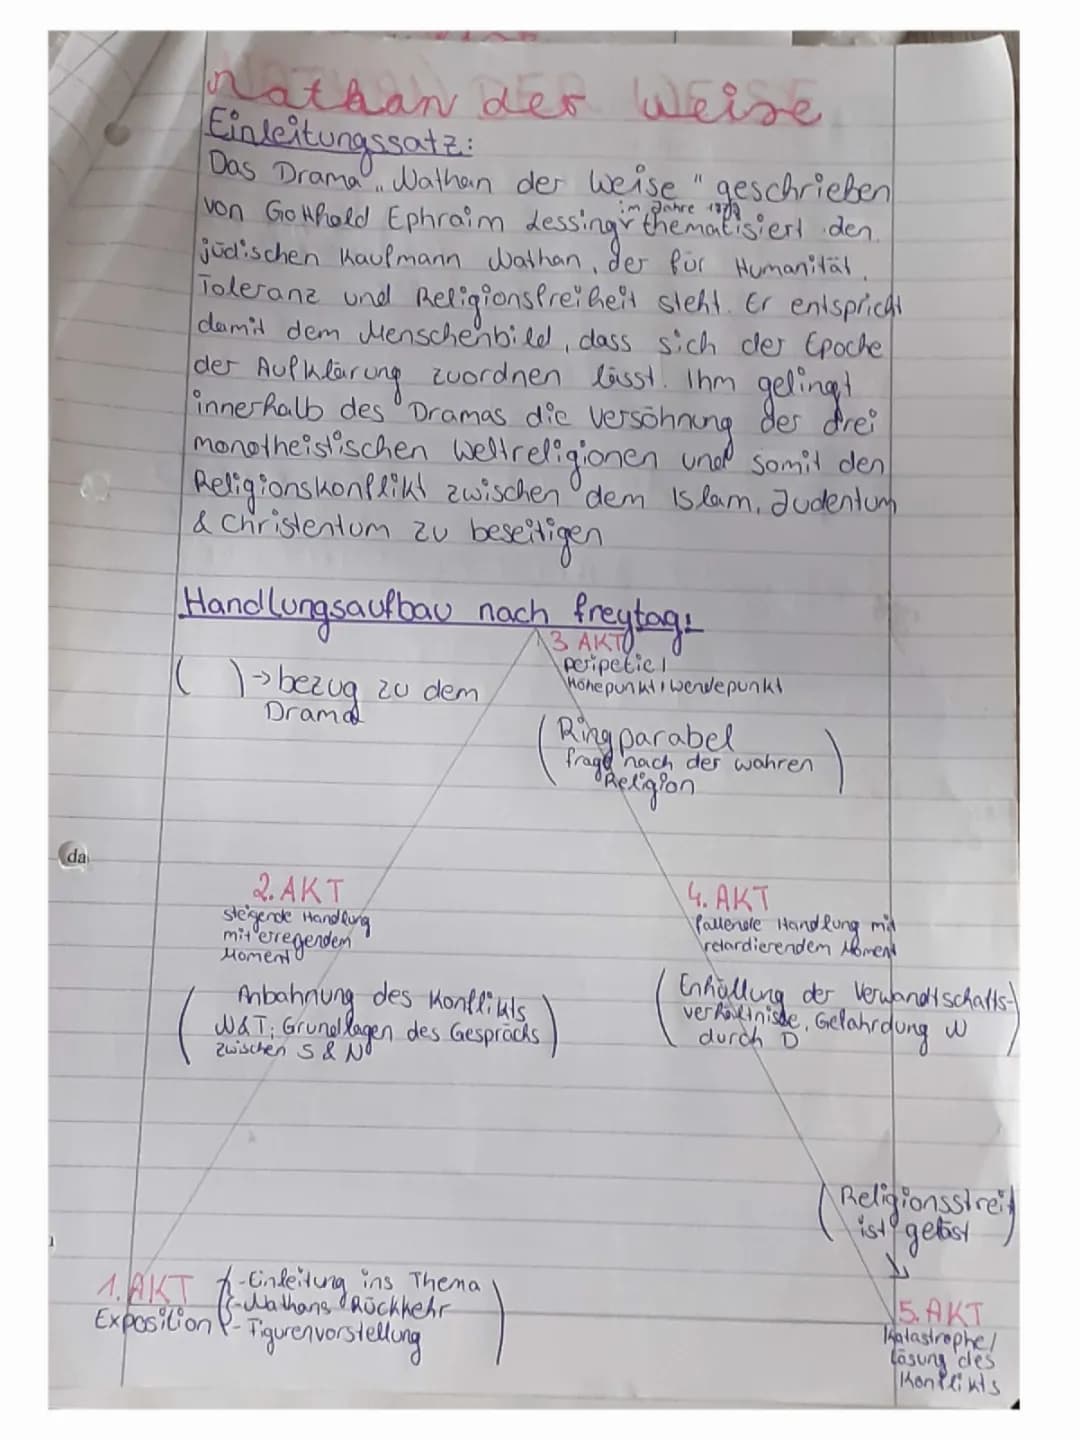 Nathan der Weise
Einleitungssatz:
Das Drama „Nathan der Weise" geschrieben
im Jahre
von Gotthold Ephraim Lessing thematisiert den
jüdischen Kaufmann Nathan, der für Humanität,
Toleranz und Religionsfreiheit steht. Er entspricht
damit dem Menschenbild, dass sich der Epoche
der Aufklärung zuordnen lässt. Ihm gelingt
innerhalb des Dramas die Versöhnung der drei
monotheistischen Weltreligionen und somit den
Religionskonflikt zwischen dem Islam, Judentum
& Christentum zu beseitigen
Handlungsaufbau nach freytag:
3 AKT
peripetie/
Höhepunkt/wendepunkt
( ) → bezug zu dem
Drama
(Ringparabel
frage nach der wahren
Religion)
da
2. AKT
steigende Handlung
mit erregendem
Moment
(Anbahnung des Konflikts
N&T; Grundlagen des Gesprächs
zwischen S & N)
4. AKT
fallende Handlung mit
retardierendem Moment
(Enhüllung der Verwandtschafts-
verhältnisse, Gefahrdung N
durch D)
(Religionsstreit
ist gelöst)
1. AKT
Exposition
(-Einleitung ins Thema
-Nathans Rückkehr
- Figurenvorstellung)
5. AKT
Katastrophe/
Lösung des
Konflikts